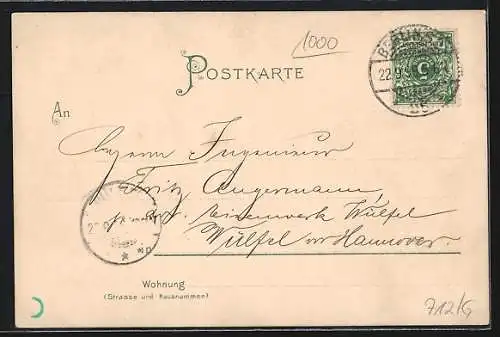 1000
POSTKARTE
BERLIN S.
22.9.9
5
An
Herrn Ingenieur
Fritz Angermann,
p. Adr. Eisenwerk Wülfel
Wülfel vor Hannover.
Wohnung
(Strasse und Hausnummer)
712/G